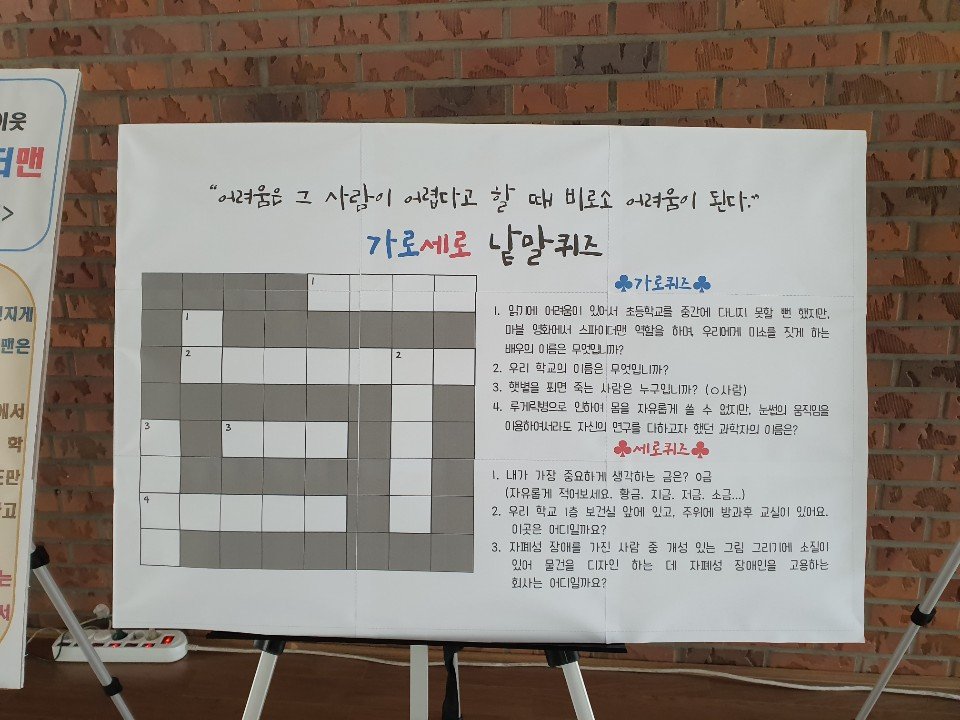 이웃
터맨
>
"어려움은 그 사람이 어렵다고 할 때 비로소 어려움이 된다."
가로세로 낱말퀴즈
1
1
2 2
3 3
4
♣가로퀴즈♣
1. 읽기에 어려움이 있어서 초등학교를 중간에 다니지 못할 뻔 했지만,
마블 영화에서 스파이더맨 역할을 하며, 우리에게 미소를 짓게 하는
배우의 이름은 무엇입니까?
2. 우리 학교의 이름은 무엇입니까?
3. 햇볕을 쬐면 죽는 사람은 누구입니까? (ㅇ사람)
4. 루게릭병으로 인하여 몸을 자유롭게 쓸 수 없지만, 눈썹의 움직임을
이용하여서라도 자신의 연구를 다하고자 했던 과학자의 이름은?
♣세로퀴즈♣
1. 내가 가장 중요하게 생각하는 금은? ㅇ금
(자유롭게 적어보세요. 황금. 지금. 저금. 소금...)
2. 우리 학교 1층 보건실 앞에 있고, 주위에 방과후 교실이 있어요.
이곳은 어디일까요?
3. 자폐성 장애를 가진 사람 중 개성 있는 그림 그리기에 소질이
있어 물건을 디자인 하는 데 자폐성 장애인을 고용하는
회사는 어디일까요?